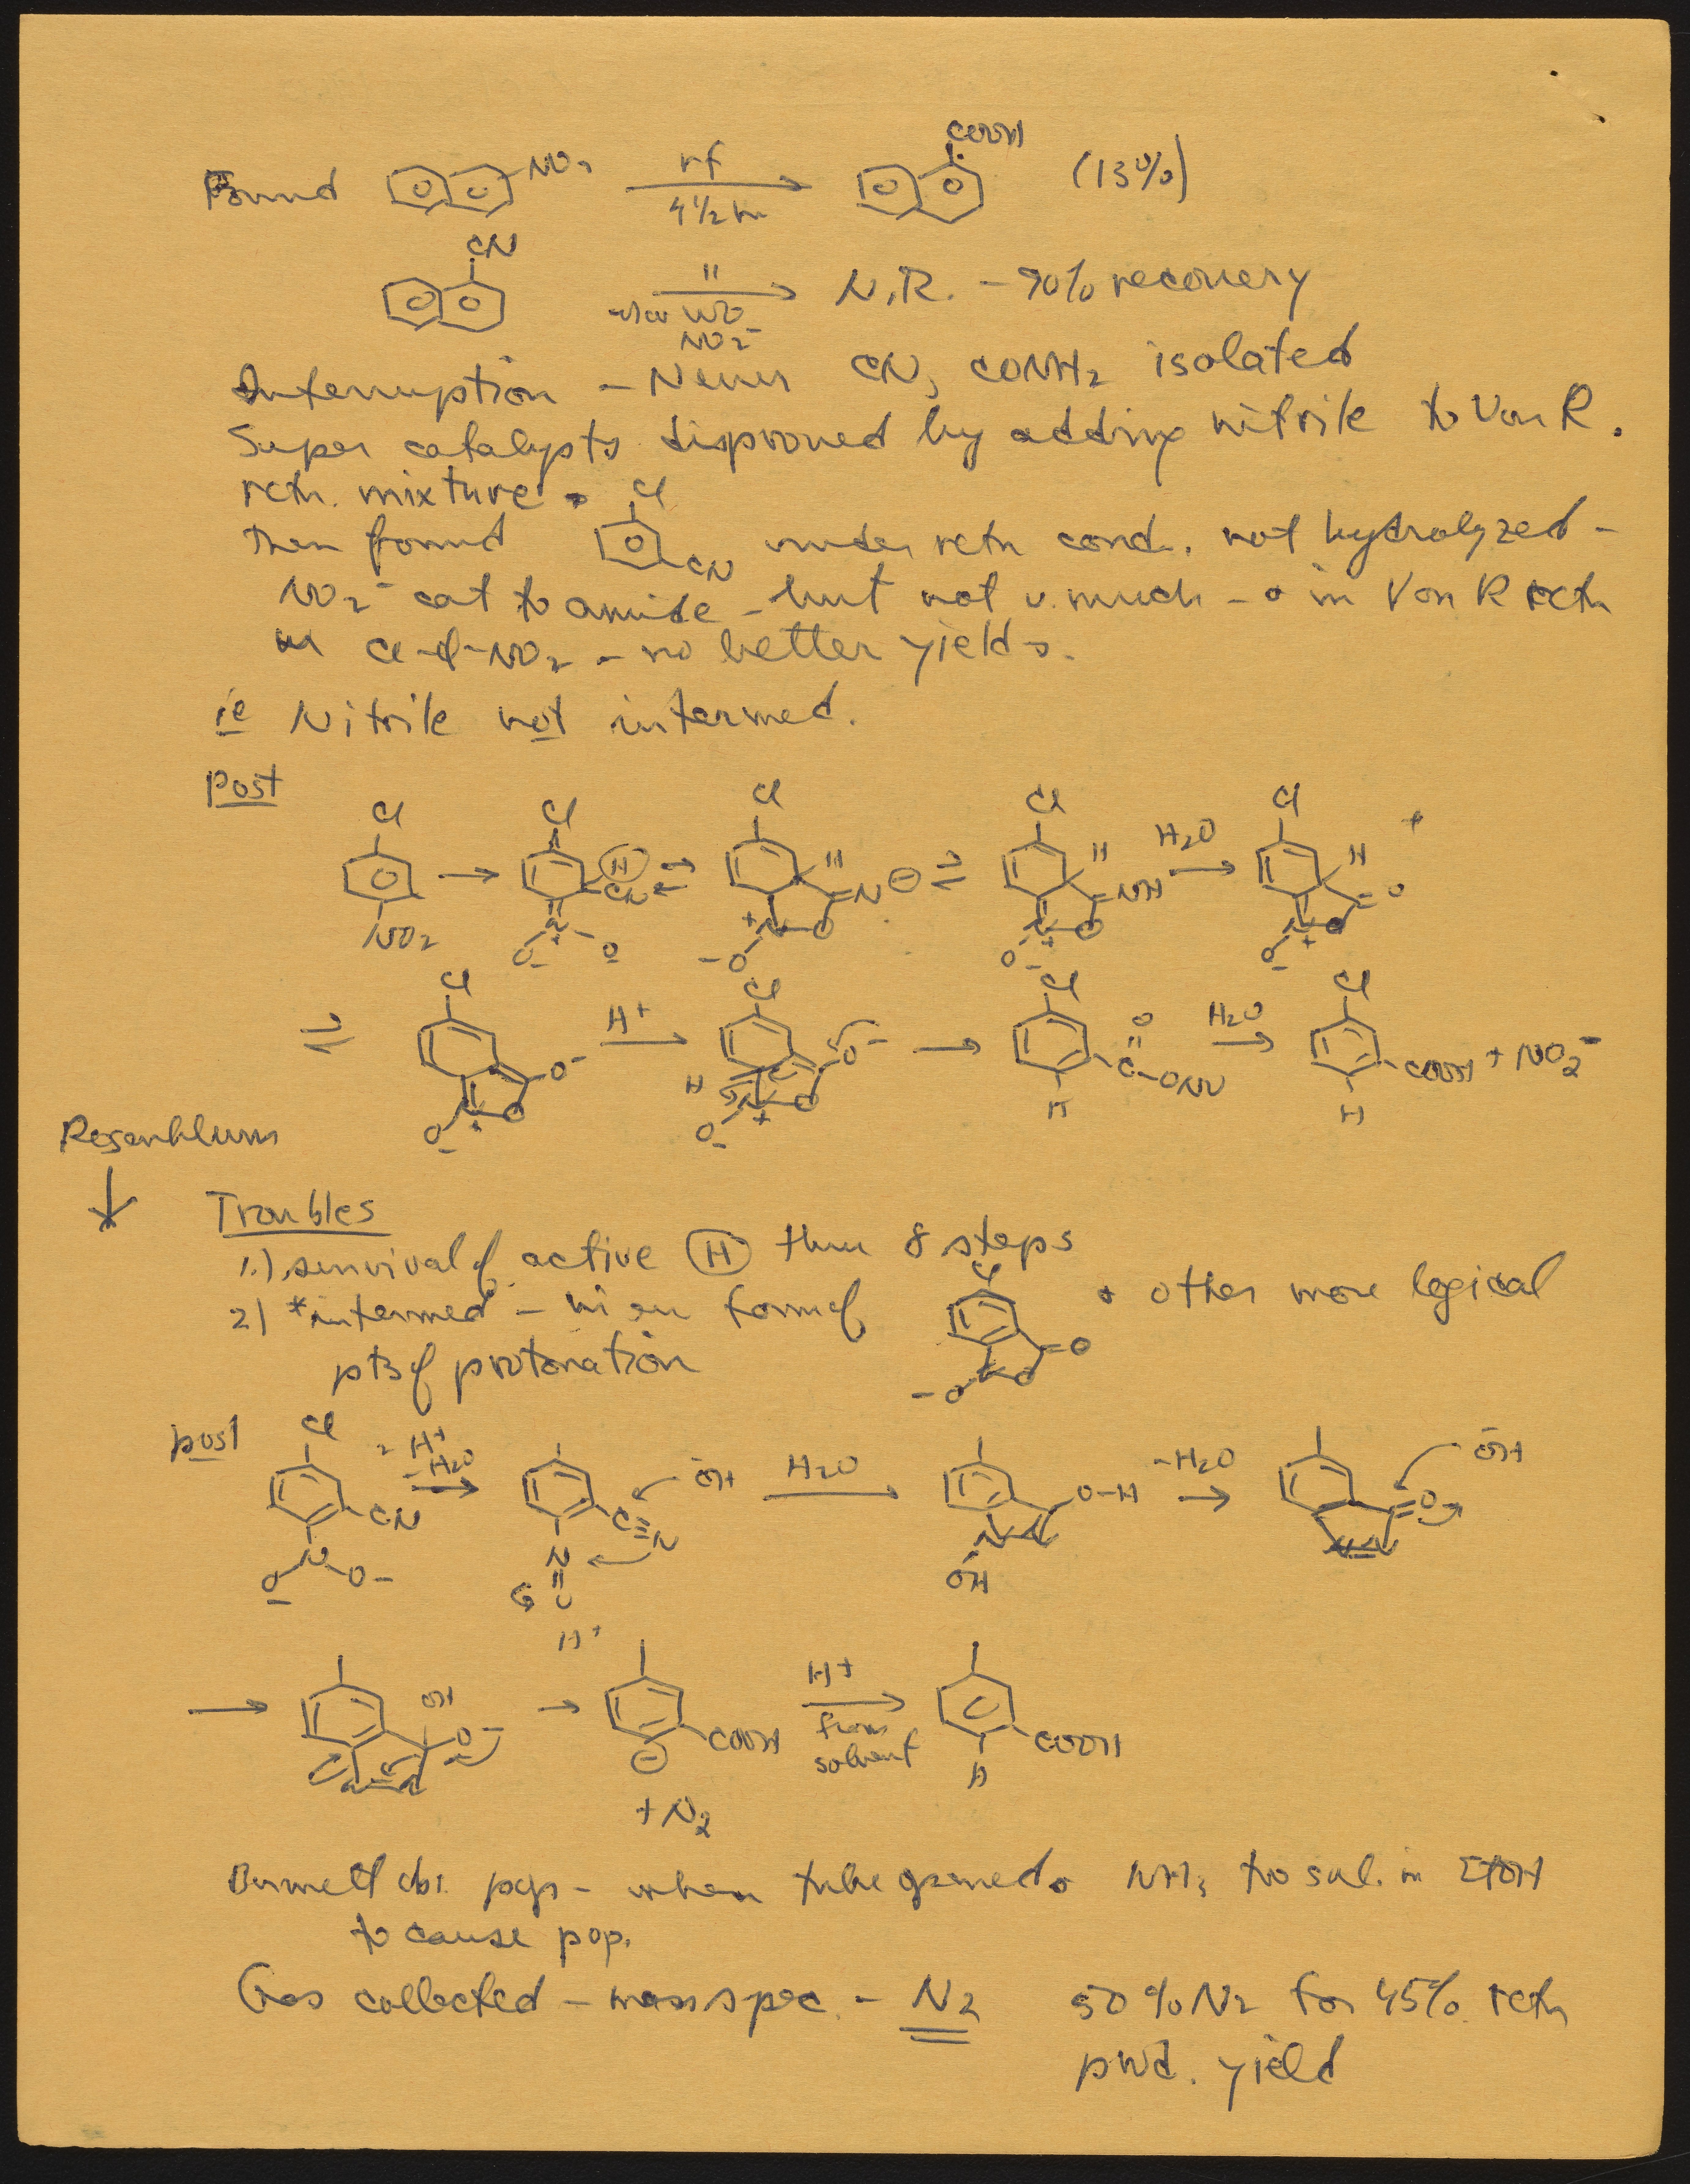 Found NO2 rf 4 1/2 hr COOH (13%)
CN " NO2- N.R. - 90% recovery
Interruption - Never CN, CONH2 isolated
Super catalysts disproved by adding nitrile to Von R.
rctn. mixture.
Then found Cl CN under rctn cond. not hydrolyzed -
NO2- cat to amide - but not v. much - in Von R rctn
Cl-φ-NO2 - no better yields.
ie Nitrile not intermed.
post
Cl NO2 → Cl H CN N O- O- ⇌ Cl H N⊖ +N O -O ⇌ Cl H NH N+ O O- H2O → Cl H O N+ O O-
⇌ Cl O- N+ O O- H+ → Cl O- H N+ O O- → Cl O C-ONO H H2O → Cl COOH + NO2- H
Rosenblum
↓
Troubles
1.) survival of active H thru 8 steps
2) *intermed - in en form of Cl O N O -O + other more logical
pts of protonation
post Cl CN N O- O- - H+ - H2O → C≡N N O ŌH H2O → O-H N N OH -H2O → O N=N ŌH
→ OH O- N=N H+ → COOH ⊖ + N2 H+ from solvent → COOH H
Bunnett obs. pops - when tube opened. NH3 too sol. in EtOH
to cause pop.
Gas collected - mass spec. - N2 50% N2 for 45% rctn
prod. yield